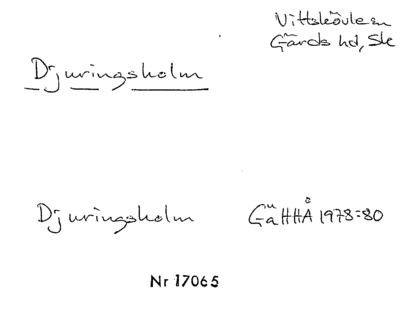 Vittskövle sn
Gärds hd, Sk
Djuringsholm
Djuringsholm GäHHÅ 1978:80
Nr 17065